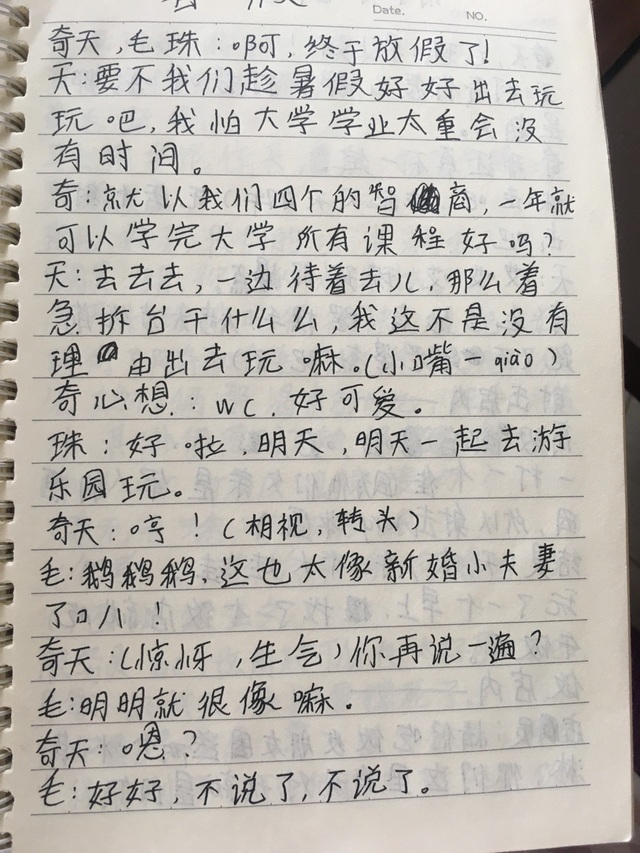 Date.
NO.
奇天,毛珠:啊,终于放假了!
天:要不我们趁暑假好好出去玩
玩吧,我怕大学学业太重会没
有时间。
奇:就以我们四个的智商,一年就
可以学完大学所有课程好吗?
天:去去去,一边待着去儿,那么着
急拆台干什么么,我这不是没有
理由出去玩嘛。(小嘴一qiào)
奇心想:wc,好可爱。
珠:好啦,明天,明天一起去游
乐园玩。
奇天:哼!(相视,转头)
毛:鹅鹅鹅,这也太像新婚小夫妻
了叭!
奇天:(惊讶,生气)你再说一遍?
毛:明明就很像嘛。
奇天:嗯?
毛:好好,不说了,不说了。